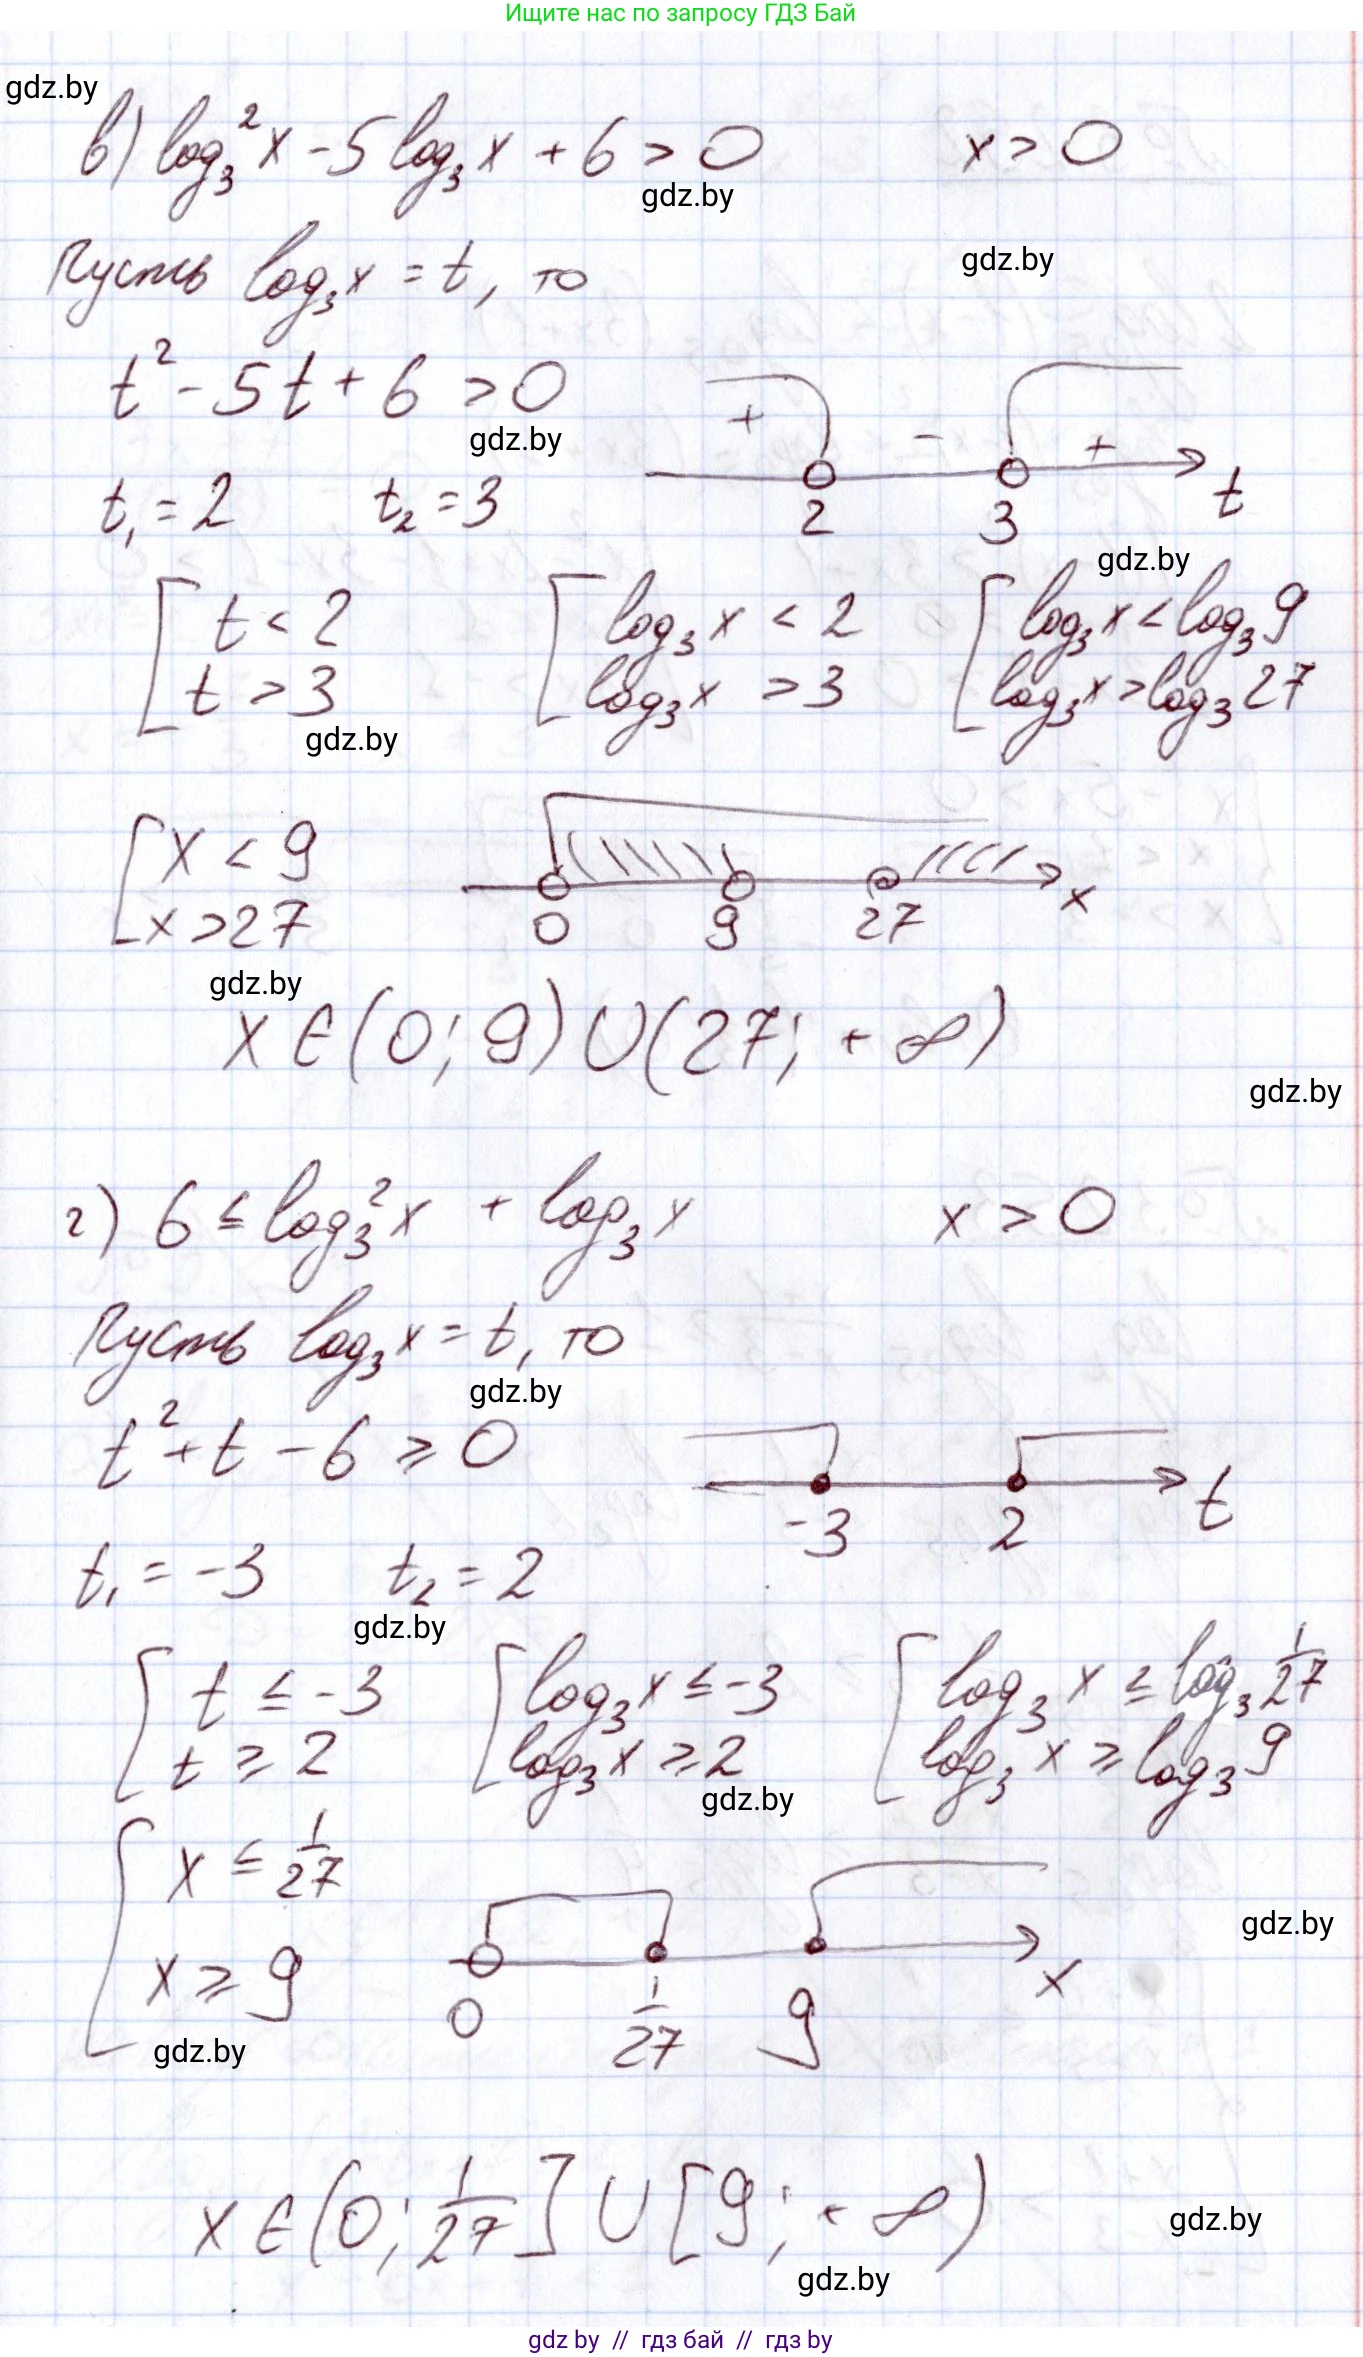 Ищите нас по запросу ГДЗ Бай
gdz.by
в) log₃²x - 5 log₃x + 6 > 0    x > 0
gdz.by
gdz.by
Пусть log₃x = t, то
t² - 5t + 6 > 0
gdz.by
+ - +
2 3 t
t₁ = 2    t₂ = 3
gdz.by
[ t < 2    [ log₃x < 2    [ log₃x < log₃9
t > 3    log₃x > 3    log₃x > log₃27
gdz.by
[ x < 9
x > 27
0 9 27 x
gdz.by
x ∈ (0; 9) ∪ (27; +∞)
gdz.by
г) 6 ≤ log₃²x + log₃x    x > 0
Пусть log₃x = t, то
gdz.by
t² + t - 6 ≥ 0
-3 2 t
t₁ = -3    t₂ = 2
gdz.by
[ t ≤ -3    [ log₃x ≤ -3    [ log₃x ≤ log₃ 1/27
t ≥ 2    log₃x ≥ 2    log₃x ≥ log₃9
gdz.by
[ x ≤ 1/27
x ≥ 9
gdz.by
0 1/27 9 x
gdz.by
x ∈ (0; 1/27] ∪ [9; +∞)
gdz.by
gdz.by
gdz by // гдз бай // гдз by